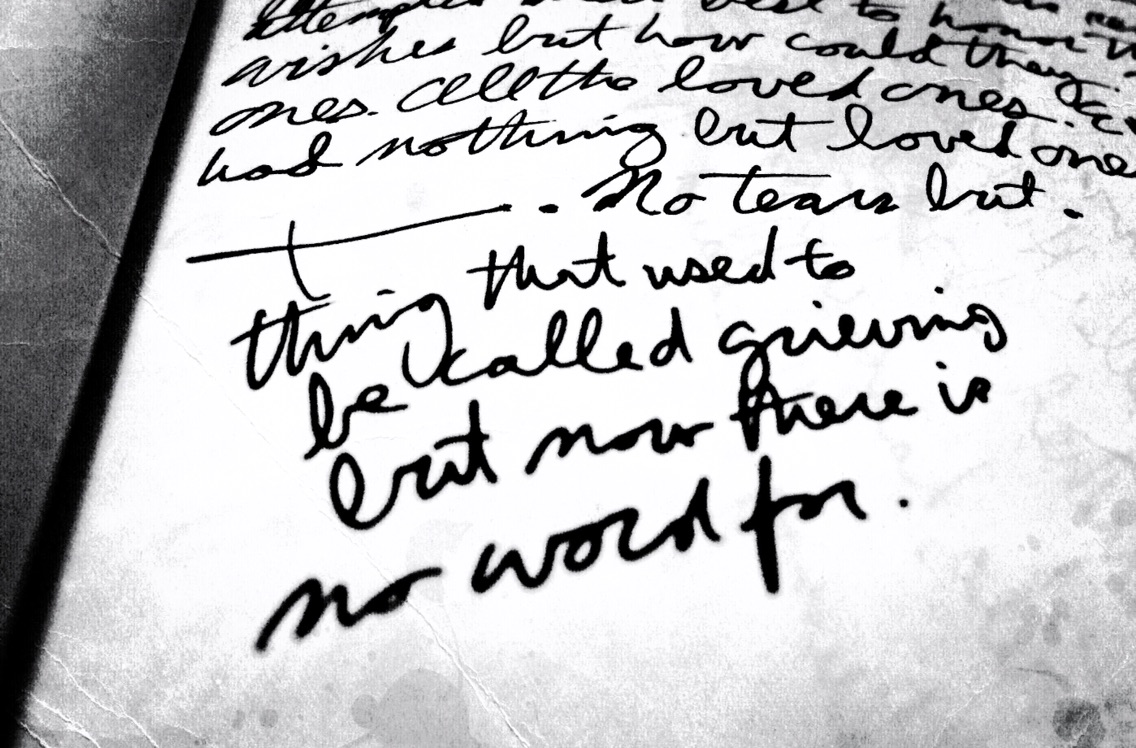 attempted their best to honor
wishes but how could they.
ones. All the loved ones.
had nothing but loved one
. No tears but.
that used to
thing
be called grieving
but now there is
no word for.